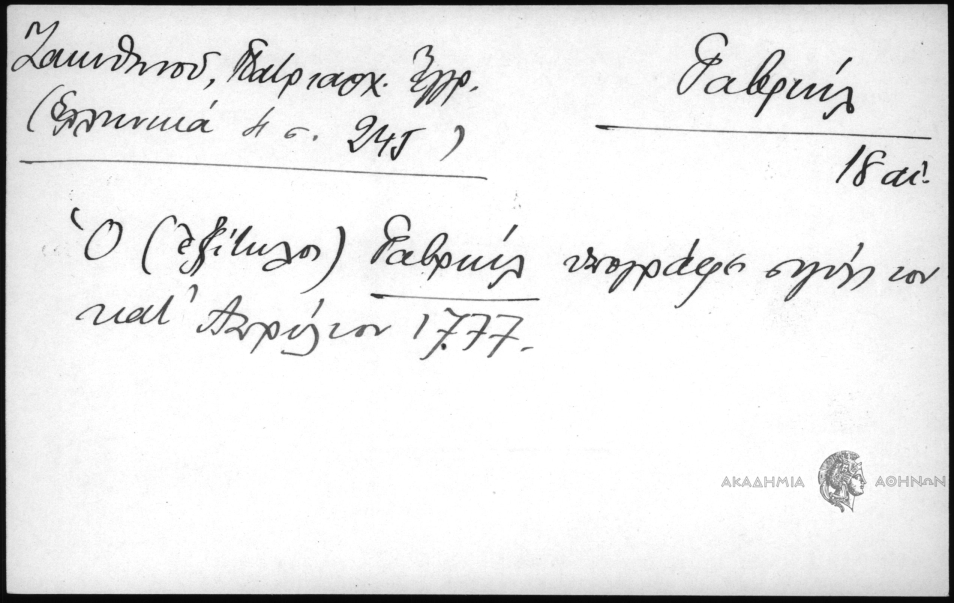 Ζακυθηνοῦ, Πατριαρχ. Ἔγγρ.
(Ἑλληνικά 4 σ. 245)
Γαβριήλ
18 αἰ.
Ὁ (ἐξίτηλος) Γαβριήλ ὑπογράφει σιγίλλιον
κατ' Ἀπρίλιον 1777.
ΑΚΑΔΗΜΙΑ ΑΘΗΝΩΝ